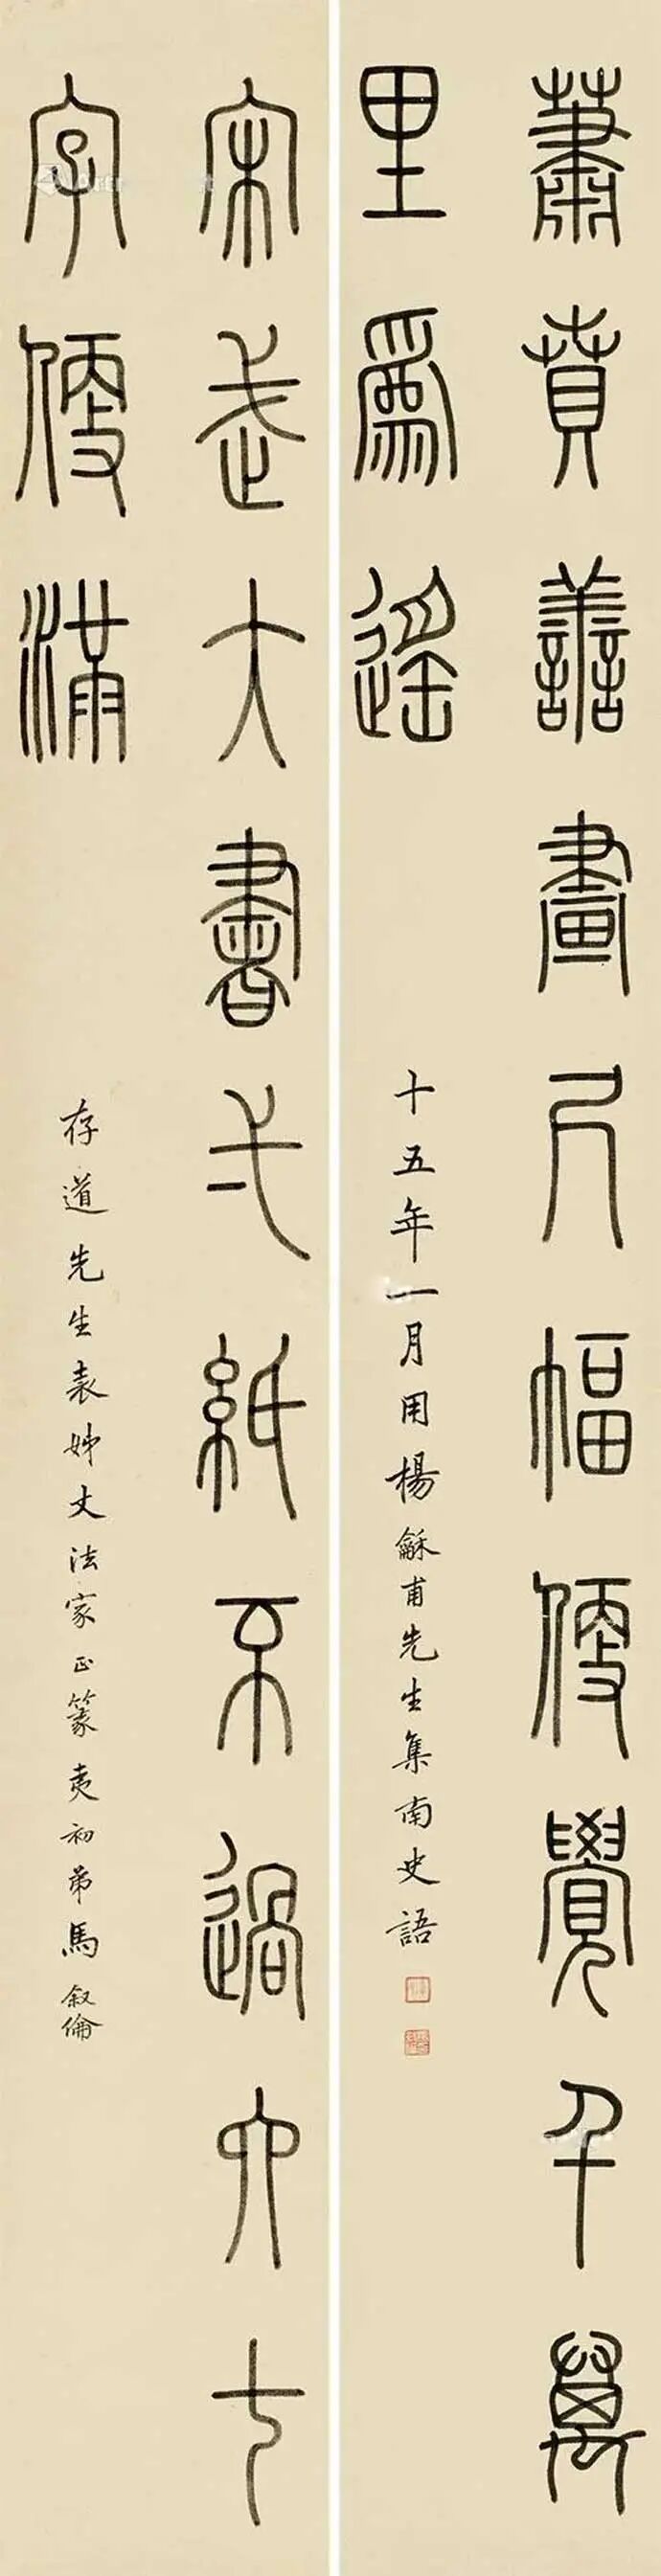 蕭賁善畫尺幅便覺千萬
里爲遙
十五年一月用楊龢甫先生集南史語
宋武大書弌紙不過六七
字便滿
存道先生表姊丈法家正篆 夷初弟馬叙倫